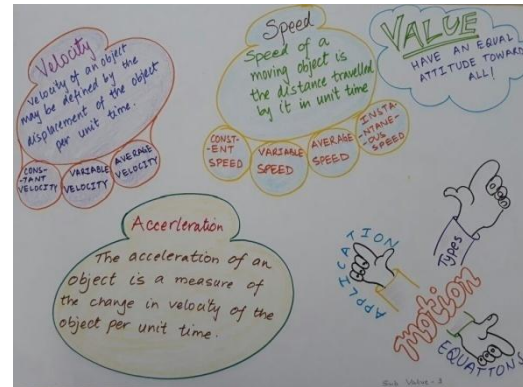 Velocity
Velocity of an object
may be defined by the
displacement of the object
per unit time.
CONS-
TANT
VELOCITY
VARIABLE
VELOCITY
AVERAGE
VELOCITY
Speed
Speed of a
moving object is
the distance travelled
by it in unit time
CONST-
ENT
SPEED
VARIABLE
SPEED
AVERAGE
SPEED
INSTA-
NTANE-
OUS
SPEED
VALUE
HAVE AN EQUAL
ATTITUDE TOWARD
ALL!
Accerleration
The acceleration of an
object is a measure of
the change in velocity of the
object per unit time.
APPLICATION
Types
Motion
EQUATIONS